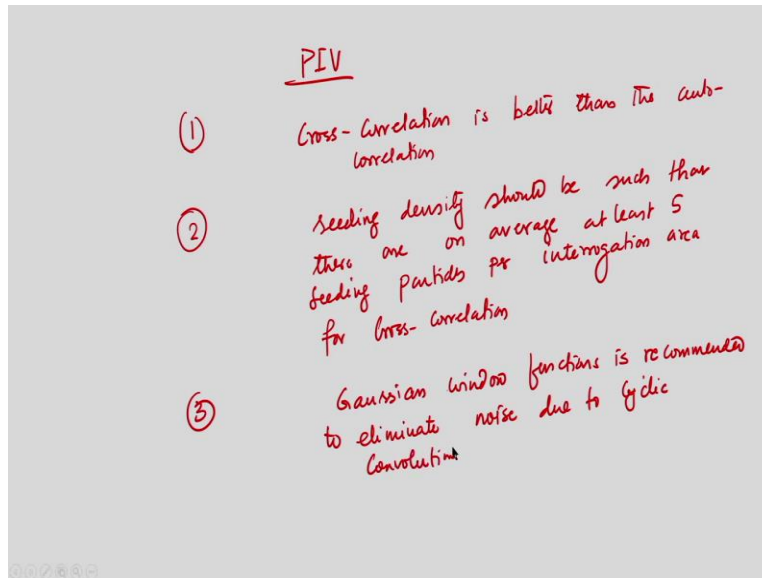 PIV
① Cross-Correlation is better than the auto-
correlation
② Seeding density should be such that
there are on average at least 5
seeding particles per interrogation area
for Cross-Correlation
③ Gaussian window functions is recommended
to eliminate noise due to Cyclic
Convolution